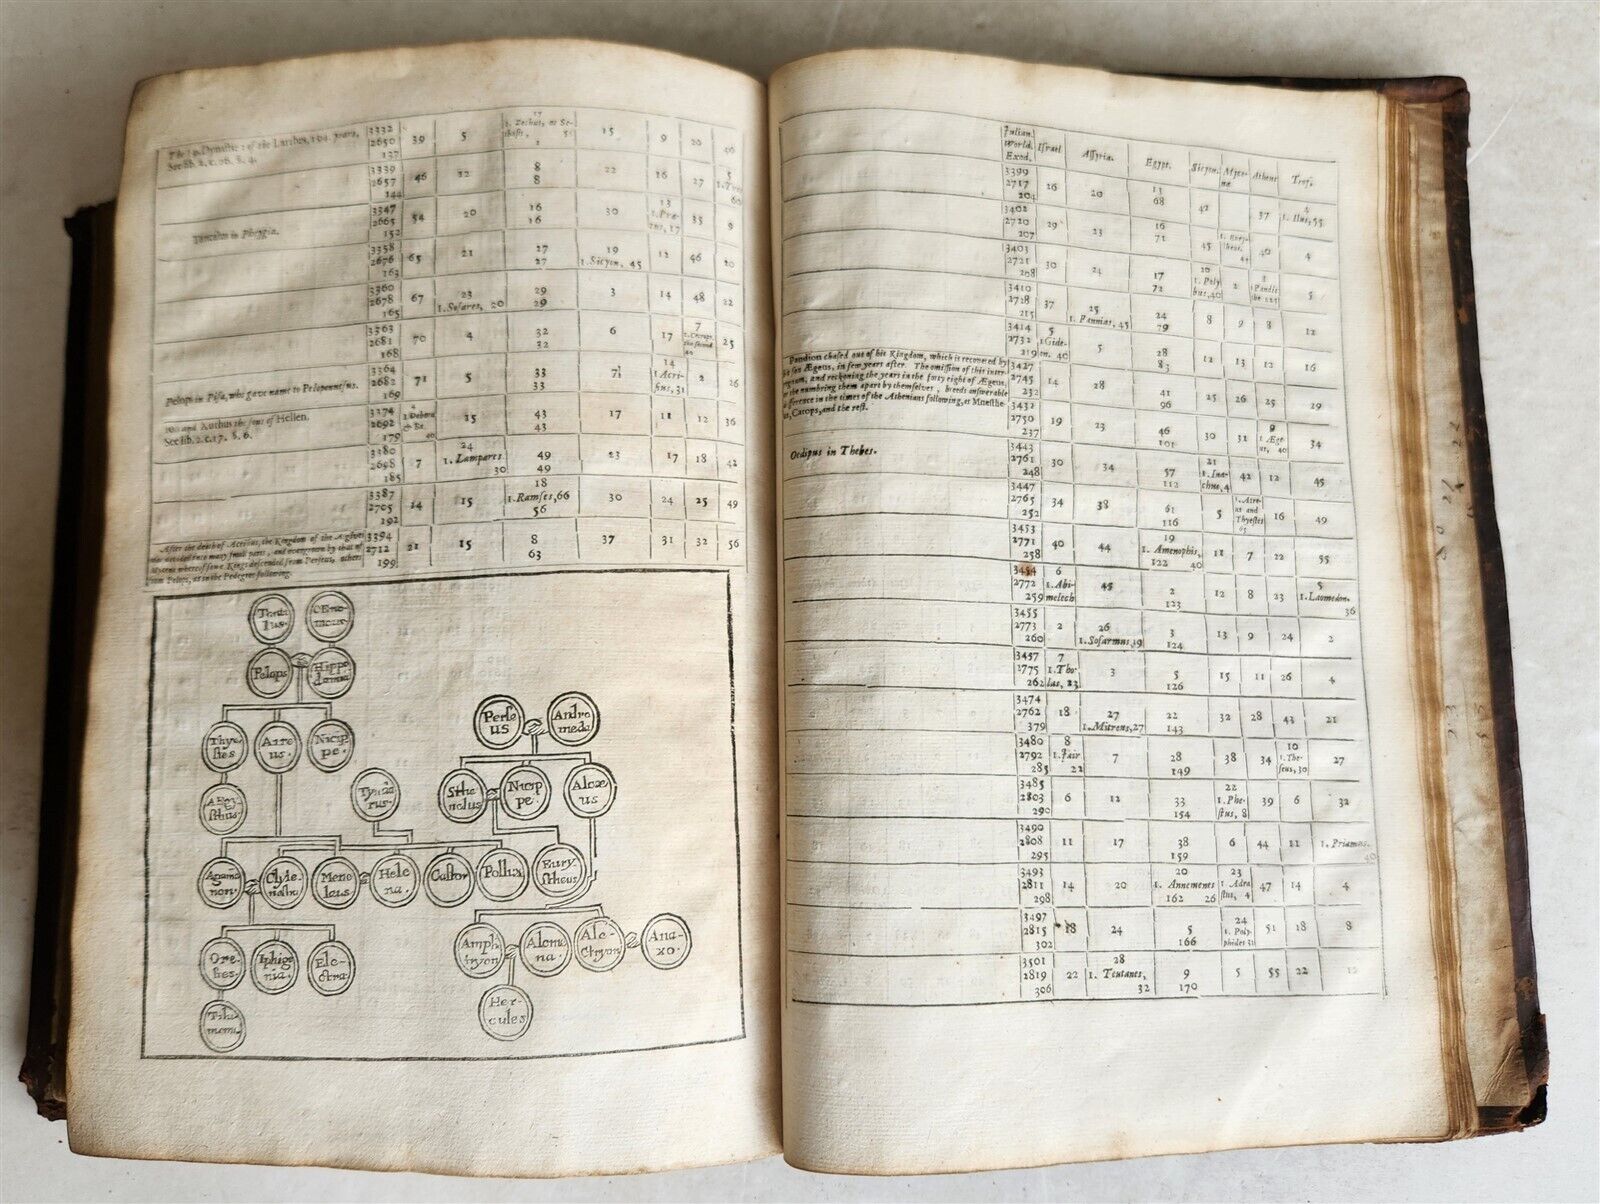 The 19. Dynastie: of the Larthes, 194. years,
See lib. 2. c. 26. §. 4.
3332 39 5 1. Zethus, or Sethosis, 15 9 20 46
2650
137
3339 46 12 8 22 16 27 5
2657 8
144 60
Tantalus in Phrygia.
3347 54 20 16 30 13 35 9
2665 16 1. Prætus, 17
152
3358 65 21 27 19 12 46 20
2676 27 1. Sicyon, 45
163
3360 67 23 29 3 14 48 22
2678 1. Sosares, 20 29
165
3363 70 4 32 6 17 7 25
2681 32
168
Pelops in Pisa, who gave name to Peloponnesus.
3364 71 5 33 7 14 2 26
2682 33 1. Acrisius, 31
169
and Xuthus the sons of Hellen.
See lib. 2. c. 17. §. 6.
3374 1. Debora & Ba. 40 15 43 17 11 12 36
2692 43
179
3380 7 24 49 23 17 18 42
2698 1. Lampares 49
185 30
3387 14 15 18 30 24 25 49
2705 1. Ramses, 66
192 56
3394 21 15 8 37 31 32 56
2712 63
199
from Pelops, as in the Pedegree following.
Tantalus. OEnomaus.
Pelops Hippodamia
Thyestes Atreus. Nicippe.
Perseus Andromeda
Ægysthus. Tyndarus. Sthenelus Nicippe. Alcæus
Agamemnon. Clytemnestra Menelaus Helena. Castor Pollux Eurystheus
Orestes. Iphigenia. Electra Amphitryon Alcmena. Alectryon Anaxo.
Tisamenus. Hercules
Julian. World. Exod. Israel Assyria. Egypt. Sicyon. Mycene Athens Troy.
3399 26 20 13 42 37 4
2717 68 1. Ilus, 55
204
3402 29 23 16 45 40 4
2720 71
207
3403 30 24 17 10 2 5
2721 72 1. Polybus, 40
208
3410 37 25 24 8 9 8 12
2728 1. Pannias, 45 79
215
3414 5 5 28 12 13 12 16
2732 1. Gideon. 40 83
219
Pandion chased out of his Kingdom, which is recovered by
his son Ægeus, in few years after. The omission of this interregnum,
and reckoning the years in the forty eight of Ægeus,
or the numbring them apart by themselves, breeds
difference in the times of the Athenians following, as Mnestheus,
and the rest.
3427 14 28 41 25 26 25 29
2745 96
232
3432 19 23 46 30 31 9 34
2750 101 1. Ægeus, 40
237
Oedipus in Thebes.
3443 30 34 57 21 42 12 45
2761 112
248
3447 34 38 61 5 1. Atreus and Thyestes 65 16 49
2765 116
252
3453 40 44 19 11 7 22 55
2771 1. Amenophis,
258 122 40
3454 6 45 2 12 8 23 5
2772 1. Abimelech 123 1. Laomedon.
259 36
3455 2 26 3 13 9 24 2
2773 1. Sosarmus, 19 124
260
3457 7 3 5 15 11 26 4
2775 1. Tholas, 23 126
262
3474 18 27 22 32 28 43 21
2762 1. Mitreus, 27 143
379
3480 8 7 28 38 34 10 27
2792 1. Jair 149 1. Theseus, 30
285 22
3485 6 12 33 22 39 6 32
2803 154 1. Phestus, 8
290
3490 11 17 38 6 44 11 1. Priamus.
2808 159 40
295
3493 14 20 20 23 47 14 4
2811 1. Annemenes 1. Adrastus, 4
298 162 26
3497 18 24 5 24 51 18 8
2815 166 1. Polyphides 31
302
3501 22 28 9 5 55 22 12
2819 1. Teutanes, 170
306 32